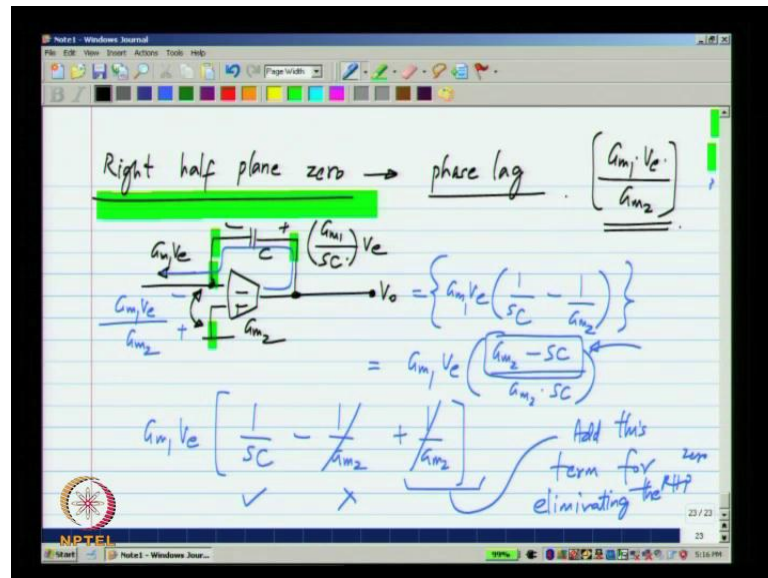 Note1 - Windows Journal
File Edit View Insert Actions Tools Help
Page Width
B I
Right half plane zero → phase lag . [Gm1·Ve· / Gm2]
Gm1Ve - + (Gm1 / SC·) Ve
C
Gm1Ve / Gm2 - + Gm2 Vo = {Gm1Ve (1/SC - 1/Gm2)}
= Gm1 Ve (Gm2 - SC / Gm2·SC)
Gm1 Ve [1/SC - 1/Gm2 + 1/Gm2]
✓ ✗
Add this
term for zero
eliminating the RHP
NPTEL
23 / 23
23
Start Note1 - Windows Jour... 99% 5:16 PM